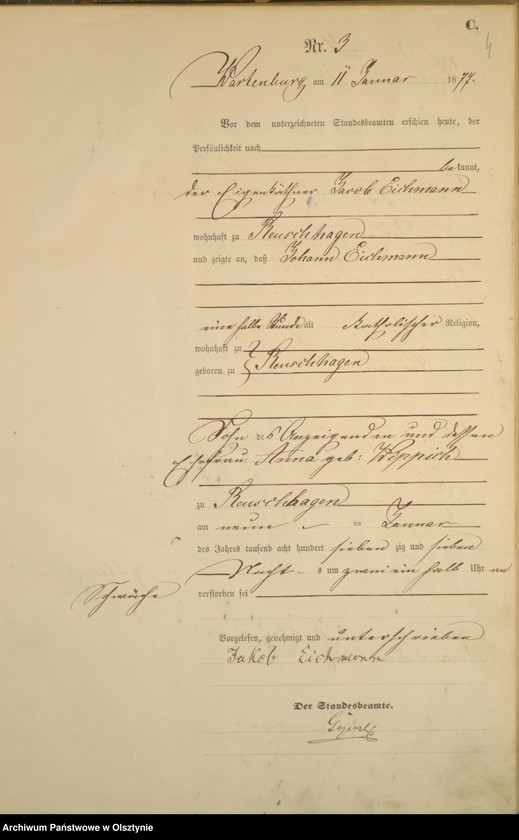 C.
4
Nr. 3
Wartenburg am 11 Januar 1877.
Vor dem unterzeichneten Standesbeamten erschien heute, der
Persönlichkeit nach
bekannt,
der Eigenkäthner Jacob Eichmann
wohnhaft zu Reuschhagen
und zeigte an, daß Johann Eichmann
eine halbe Stunde alt katholischer Religion,
wohnhaft zu
geboren zu Reuschhagen
Sohn des Anzeigenden und dessen
Ehefrau Anna geb: Wippich
zu Reuschhagen
am neun ten Januar
des Jahres tausend acht hundert sieben zig und sieben
Nacht s um zwei ein halb Uhr
Schwäche
verstorben sei
Vorgelesen, genehmigt und unterschrieben
Jakob Eichmann
Der Standesbeamte.
Archiwum Państwowe w Olsztynie